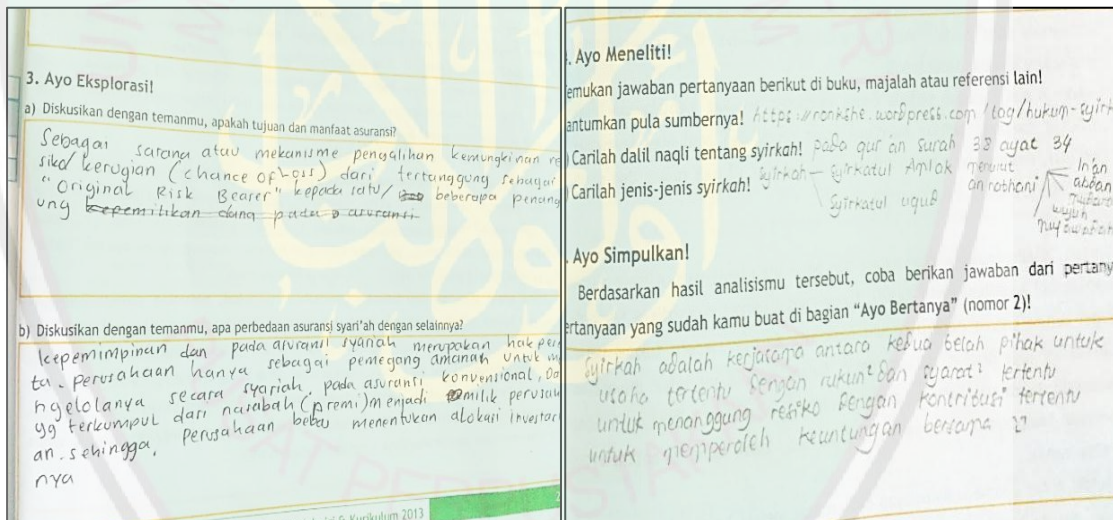 3. Ayo Eksplorasi!
a) Diskusikan dengan temanmu, apakah tujuan dan manfaat asuransi?
Sebagai sarana atau mekanisme pengalihan kemungkinan re
siko/ kerugian (chance of loss) dari tertanggung sebagai
"Original Risk Bearer" kepada satu/ beberapa penang
ung kepemilikan dana pada asuransi
b) Diskusikan dengan temanmu, apa perbedaan asuransi syari'ah dengan selainnya?
kepemimpinan dan pada asuransi syariah merupakan hak pese
ta. perusahaan hanya sebagai pemegang amanah untuk m
ngelolanya secara syariah, pada asuransi konvensional, Da
yg terkumpul dari nasabah (premi) menjadi milik perusah
an. sehingga, perusahaan bebas menentukan alokasi investasi
nya
Kurikulum 2013
. Ayo Meneliti!
emukan jawaban pertanyaan berikut di buku, majalah atau referensi lain!
antumkan pula sumbernya! https://ronkshe.wordpress.com/tag/hukum-syirk
) Carilah dalil naqli tentang syirkah! pada qur'an surah 38 ayat 34
) Carilah jenis-jenis syirkah! syirkah - syirkatul Amlak menurut an rabhani In'an
syirkatul uqud abdan
wujuh
. Ayo Simpulkan!
Berdasarkan hasil analisismu tersebut, coba berikan jawaban dari pertany
ertanyaan yang sudah kamu buat di bagian "Ayo Bertanya" (nomor 2)!
Syirkah adalah kerjasama antara kedua belah pihak untuk
usaha tertentu dengan rukun² dan syarat² tertentu
untuk menanggung resiko dengan kontribusi tertentu
untuk memperoleh keuntungan bersama